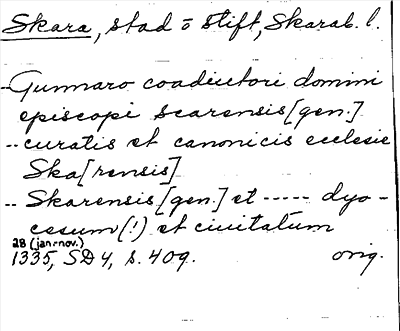 Skara, stad o stift, Skarab. l.
-- Gunnaro coadiutori domini
episcopi scarensis [gen.]
-- curatis et canonicis ecclesie
Ska[rensis]
-- Skarensis [gen.] et ----- dyo-
cesum (!) et ciuitatum
28 (jan-nov.)
1335, SD 4, s. 409. orig.